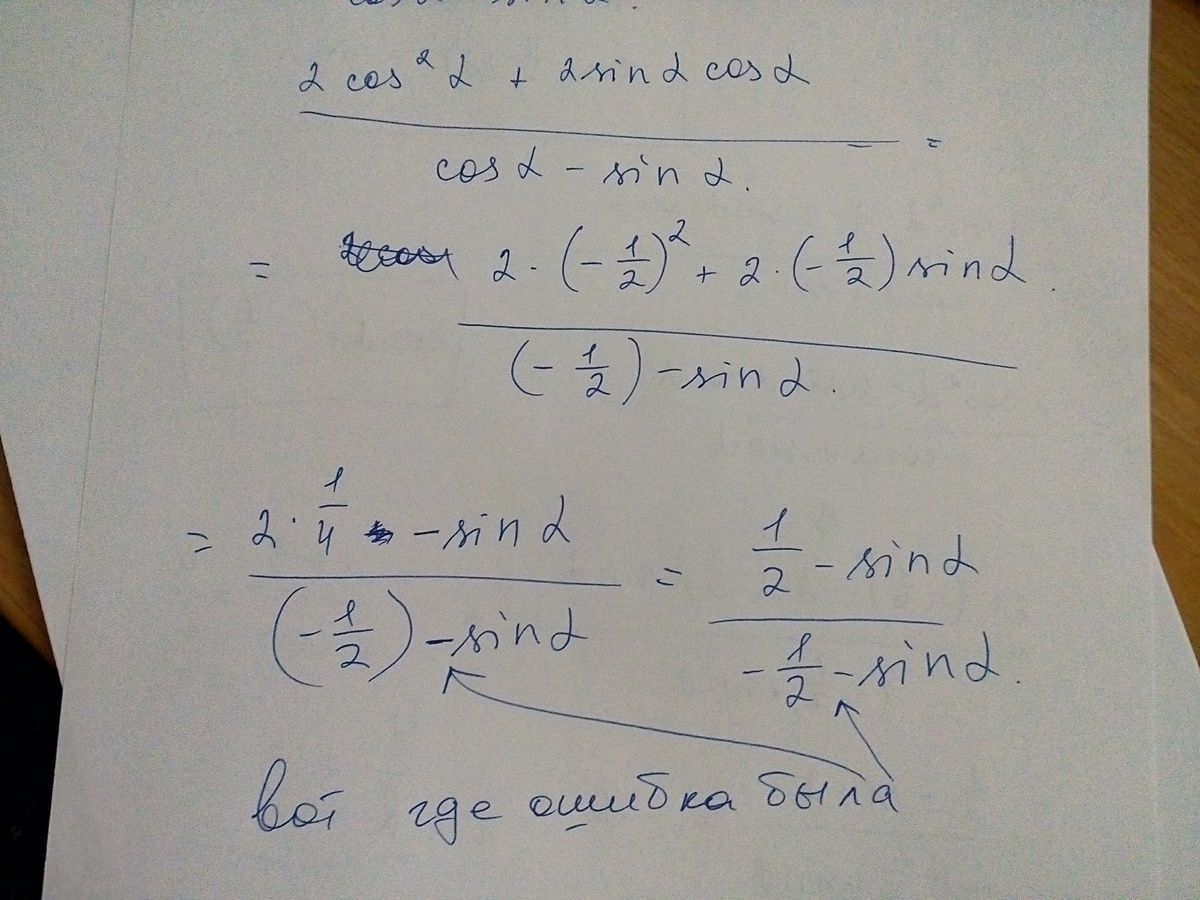 2 cos² α + 2 sin α cos α
=
cos α - sin α.
= 2 · (- 1/2)² + 2 · (- 1/2) sin α.
(- 1/2) - sin α.
= 2 · 1/4 - sin α = 1/2 - sin α
(- 1/2) - sin α - 1/2 - sin α.
вот где ошибка была